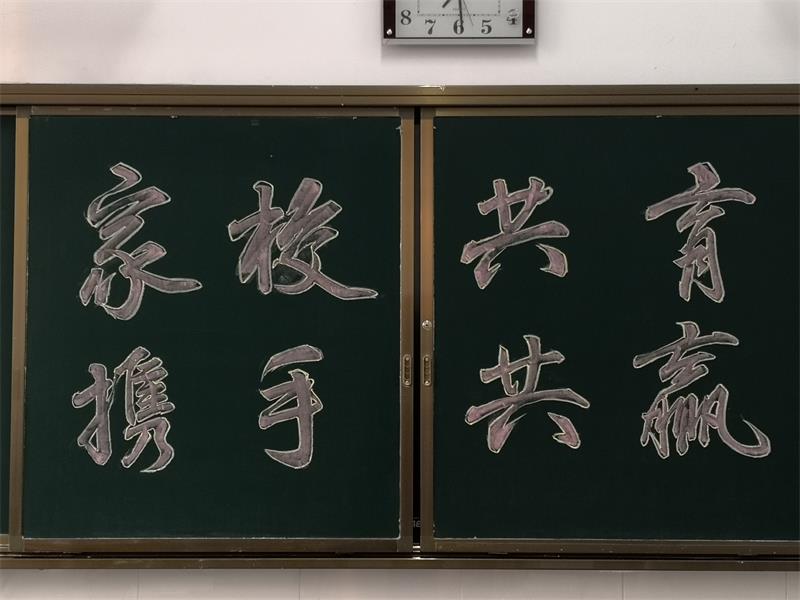 8 7 6 5 4
家校共育
携手共赢